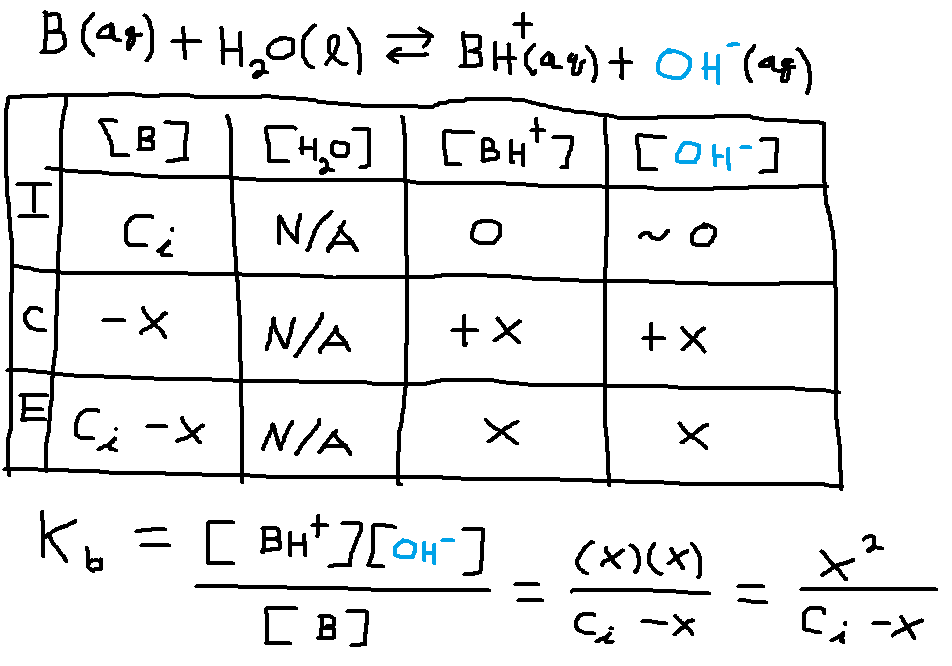 B(aq) + H₂O(l) ⇄ BH⁺(aq) + OH⁻(aq)
[B] [H₂O] [BH⁺] [OH⁻]
I Cᵢ N/A 0 ~0
C -x N/A +x +x
E Cᵢ -x N/A x x
K_b = [BH⁺][OH⁻] / [B] = (x)(x) / Cᵢ -x = x² / Cᵢ -x